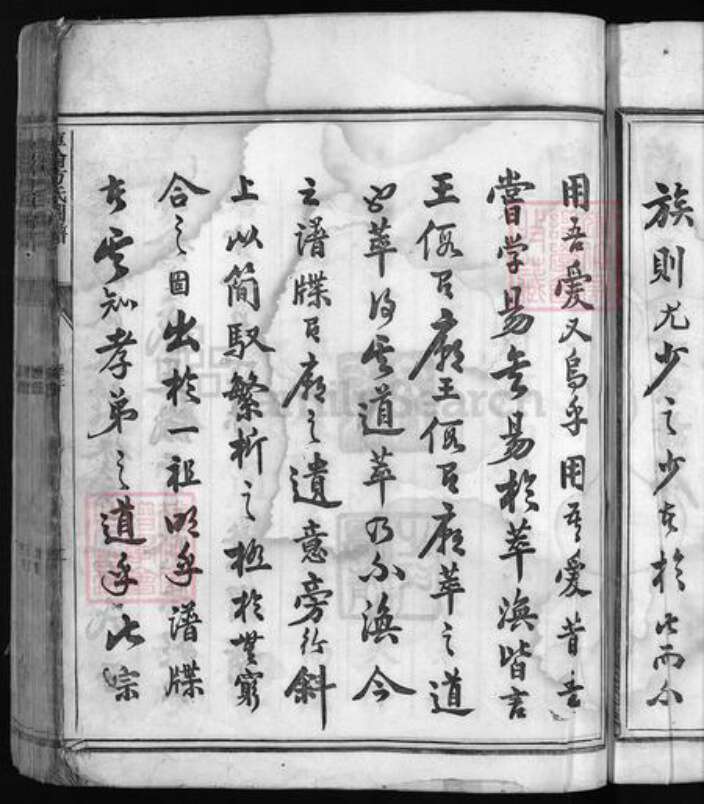 族則尤少之少者於此而不
用吾愛又烏乎用吾愛昔
嘗学易矣易於萃渙皆言
王假有廟王假有廟萃之道
也萃得其道萃乃不渙今
之譜牒有廟之遺意旁行斜
上以簡馭繁析之極於無窮
合之圖出於一祖明乎譜牒
者其知孝弟之道乎此宗
FamilySearch